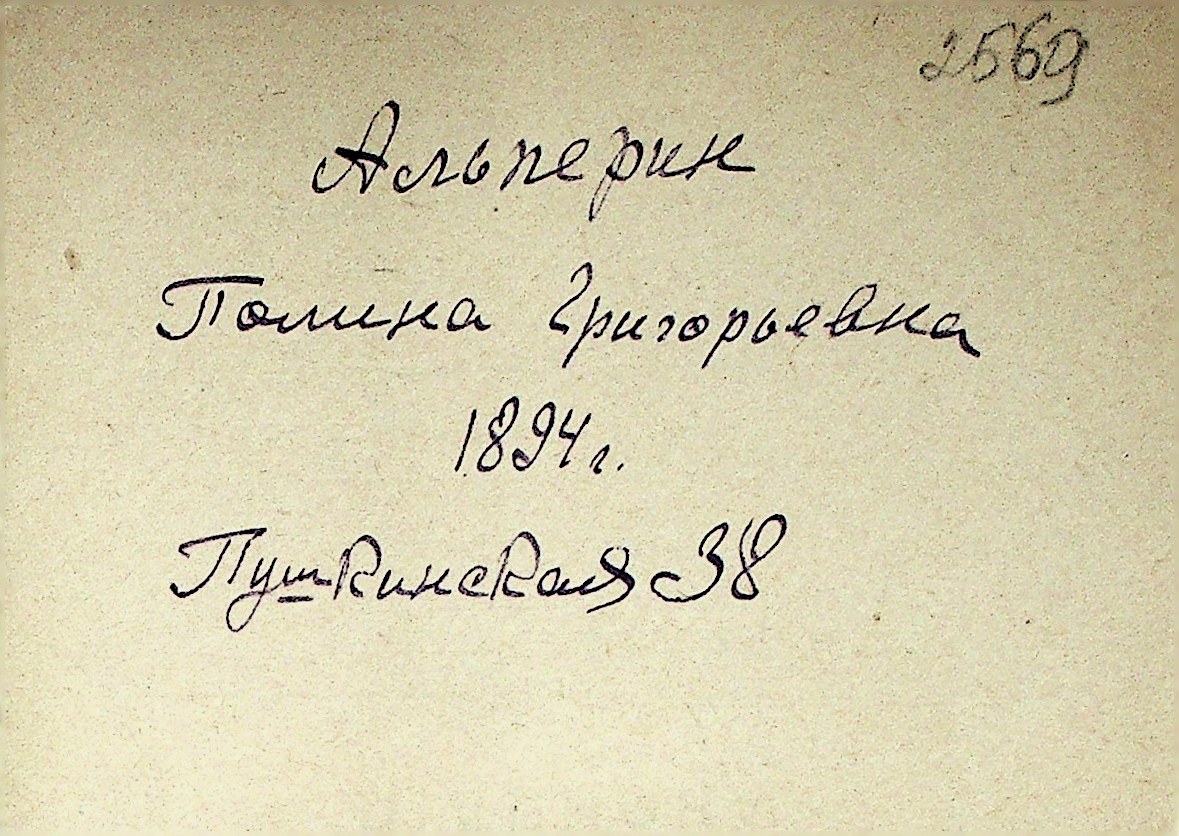 2569
Альперин
Полина Григорьевна
1894 г.
Пушкинская 38